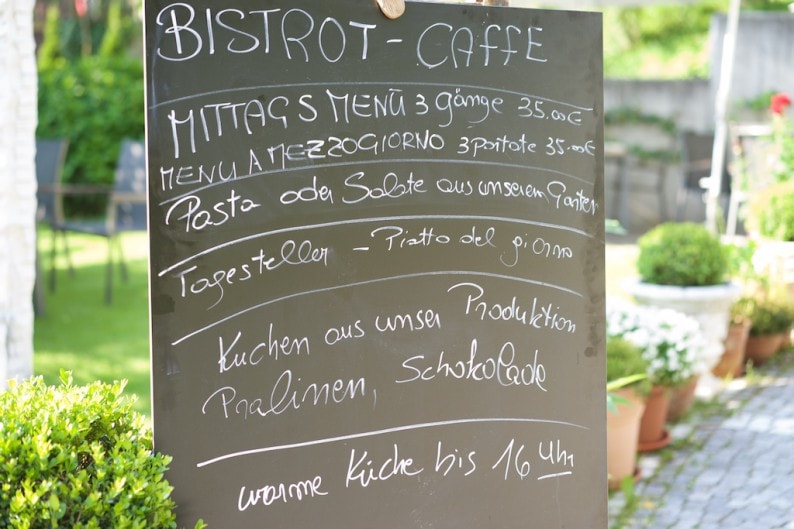 BISTROT - CAFFE
MITTAGSMENÜ 3 gänge 35.00€
MENU A MEZZOGIORNO 3 portate 35.00€
Pasta oder Salate aus unserem Garten
Tagesteller - Piatto del giorno
Kuchen aus unser Produktion
Pralinen, Schokolade
warme Küche bis 16 Uhr